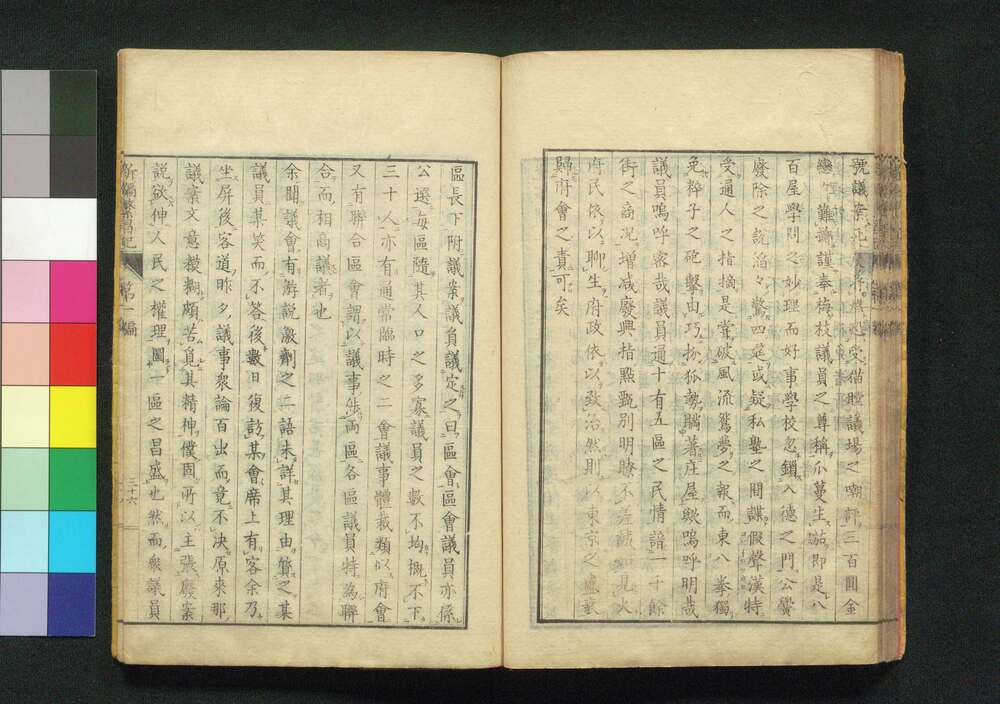 號議案死
百屋學問之妙理而好事學校忽鎖入德之門公黌
廢除之說滔々驚四筵或疑私塾之間諜假聲漢特
受通人之指摘是當破風流鴛夢之報而東八拳獨
免粹子之砲擊由巧扮狐勢購著庄屋歟嗚呼明哉
議員嗚呼客哉議員通十有五區之民情諳一千餘
街之商况增減廢興指點甄別明瞭不差
府民依以聊生府政依以致治然則以東京之盛
歸府會之責可矣
區長下附議案議員議定之曰區會區會議員亦係
公選每區隨其人口之多寡議員之數不均概不下
三十人亦有通常臨時之二會議事體裁類似府會
又有聯合區會謂以議事涉兩區各區議員特為聯
合而相商議者也
余聞議會有游說激劑之二語未詳其理由質之某
議員某笑而不答後數日復訪某會席上有客余乃
坐屏後客道昨夕議事衆論百出而竟不決原來那
議案文意模糊頗苦覓其精神僕固所以主張廢案
說欲伸人民之權理圖一區之昌盛也然而衆議員
新編繁昌記 第一編 三十六